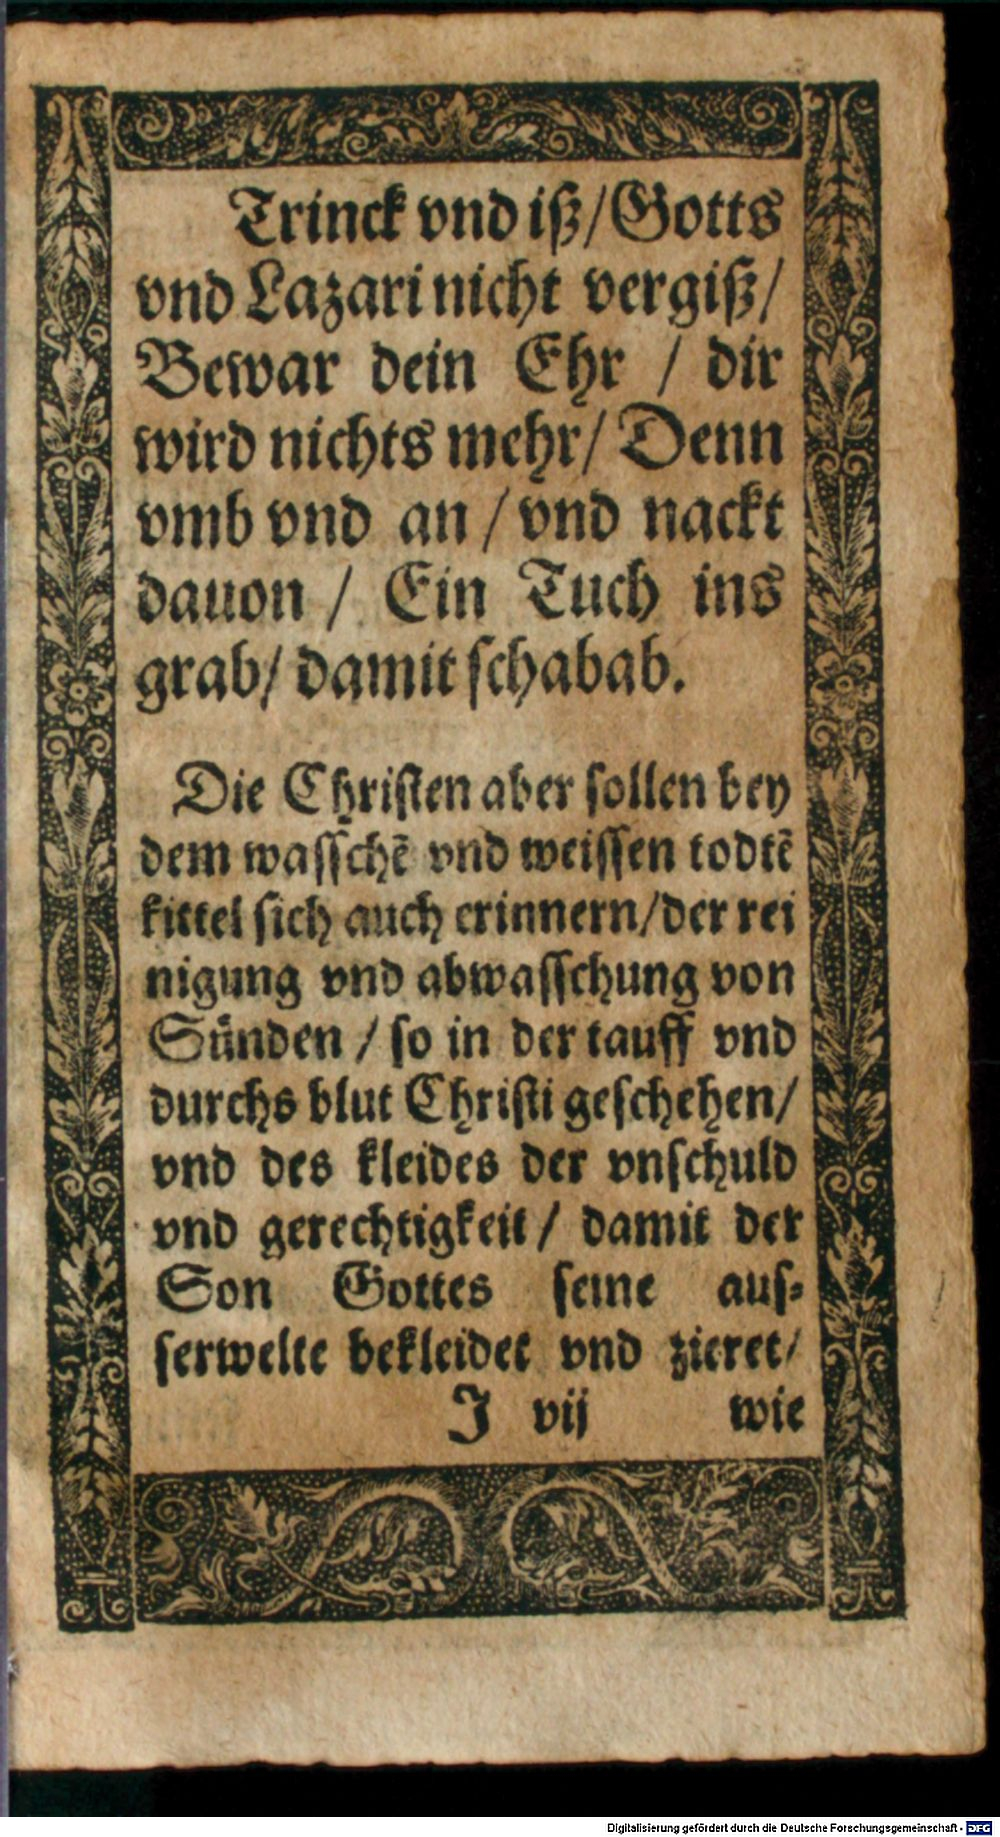 Trinck vnd iß/Gotts
vnd Lazari nicht vergiß/
Bewar dein Ehr / dir
wird nichts mehr/ Denn
vmb vnd an / vnd nackt
dauon / Ein Tuch ins
grab/ damit schabab.
Die Christen aber sollen bey
dem wasschē vnd weissen todtē
kittel sich auch erinnern/der rei
nigung vnd abwasschung von
Sünden / so in der tauff vnd
durchs blut Christi geschehen/
vnd des kleides der vnschuld
vnd gerechtigkeit / damit der
Son Gottes seine aus-
serwelte bekleidet vnd zieret/
J vij wie
Digitalisierung gefördert durch die Deutsche Forschungsgemeinschaft - DFG